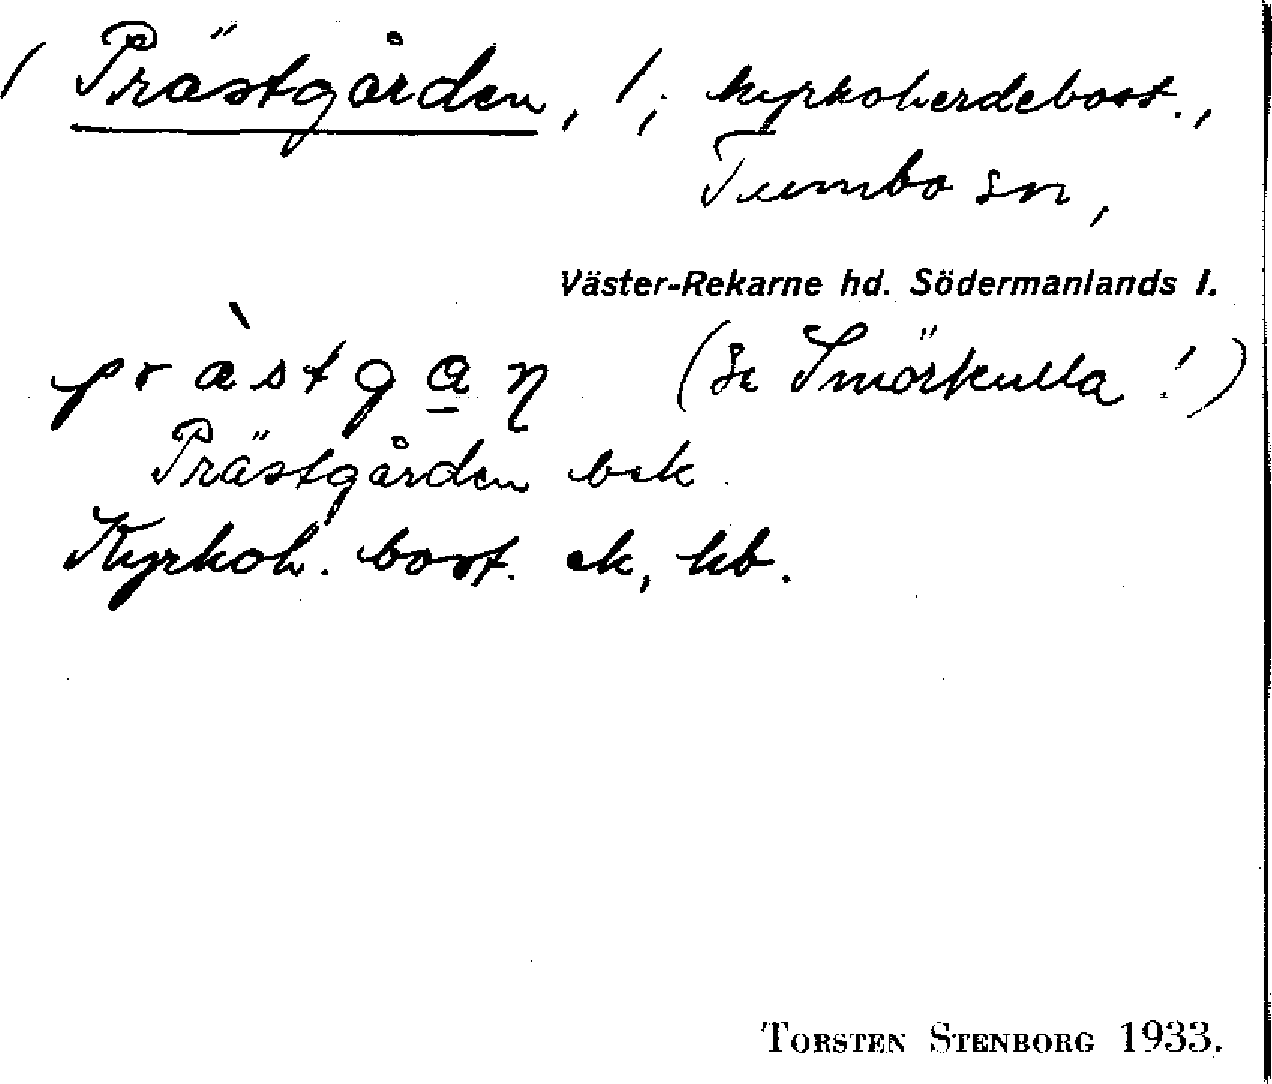 / Prästgården, /; kyrkoherdebost.,
Tumbo sn,
Väster-Rekarne hd. Södermanlands l.
præ̀stga̲ṇ (Se Smörkulla!)
Prästgården bek.
Kyrkoh. bost. ek, kb.
TORSTEN STENBORG 1933.